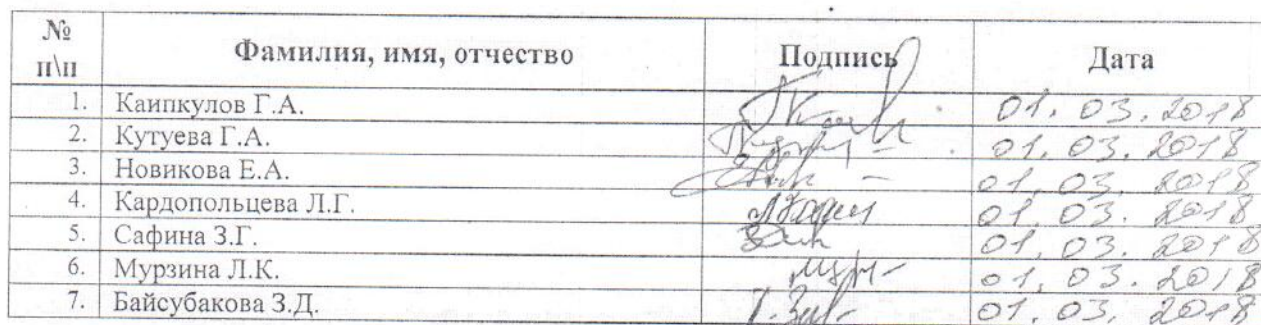 № п\п Фамилия, имя, отчество Подпись Дата
1. Каипкулов Г.А. 01.03.2018
2. Кутуева Г.А. 01.03.2018
3. Новикова Е.А. 01.03.2018
4. Кардопольцева Л.Г. 01.03.2018
5. Сафина З.Г. 01.03.2018
6. Мурзина Л.К. 01.03.2018
7. Байсубакова З.Д. 01.03.2018